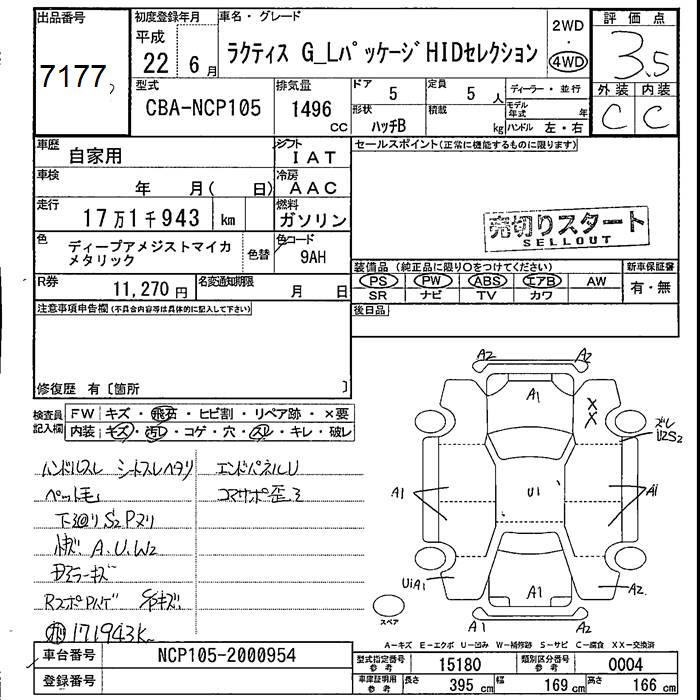 出品番号
7177
初度登録年月
平成
22年6月
車名・グレード
ラクティス G_Lパッケージ HIDセレクション
2WD
・
4WD
評価点
3.5
外装 内装
C C
型式
CBA-NCP105
排気量
1496 CC
ドア 5
定員 5 人
形状 ハッチB
積載 kg
ディーラー・並行
モデル年式 年
ハンドル 左・右
車歴 自家用
シフト IAT
車検 年 月( 日)
冷房 AAC
走行 17万1千943 km
燃料 ガソリン
色 ディープアメジストマイカメタリック
色替
色コード 9AH
R券 11,270円
名変通知期限 月 日
セールスポイント(正常に機能するものに限り)
売切りスタート
SELLOUT
装備品(純正品に限り○をつけてください)
PS PW ABS エアB AW
SR ナビ TV カワ
新車保証書
有・無
後日品
注意事項申告欄(不具合内容等は具体的に記入して下さい)
修復歴 有〔箇所 〕
検査員記入欄
FW キズ・飛石・ヒビ割・リペア跡・×要
内装 キズ・汚レ・コゲ・穴・スレ・キレ・破レ
ハンドルスレ シートスレヘタリ
ペット毛
下廻りS2Pヌリ
A.U.W2
エンドパネルU
コアサポ歪ミ
171943K
A2 A2
A1
XX
ズレ
U2S2
A1 U1 A1
UiA1
A1
A2
A1 A2
スペア
A－キズ E－エクボ U－凹み W－補修跡 S－サビ C－腐食 XX－交換済
車台番号 NCP105-2000954
登録番号
型式指定番号 参考 15180
類別区分番号 参考 0004
車庫証明用 参考 長さ 395 cm 幅 169 cm 高さ 166 cm